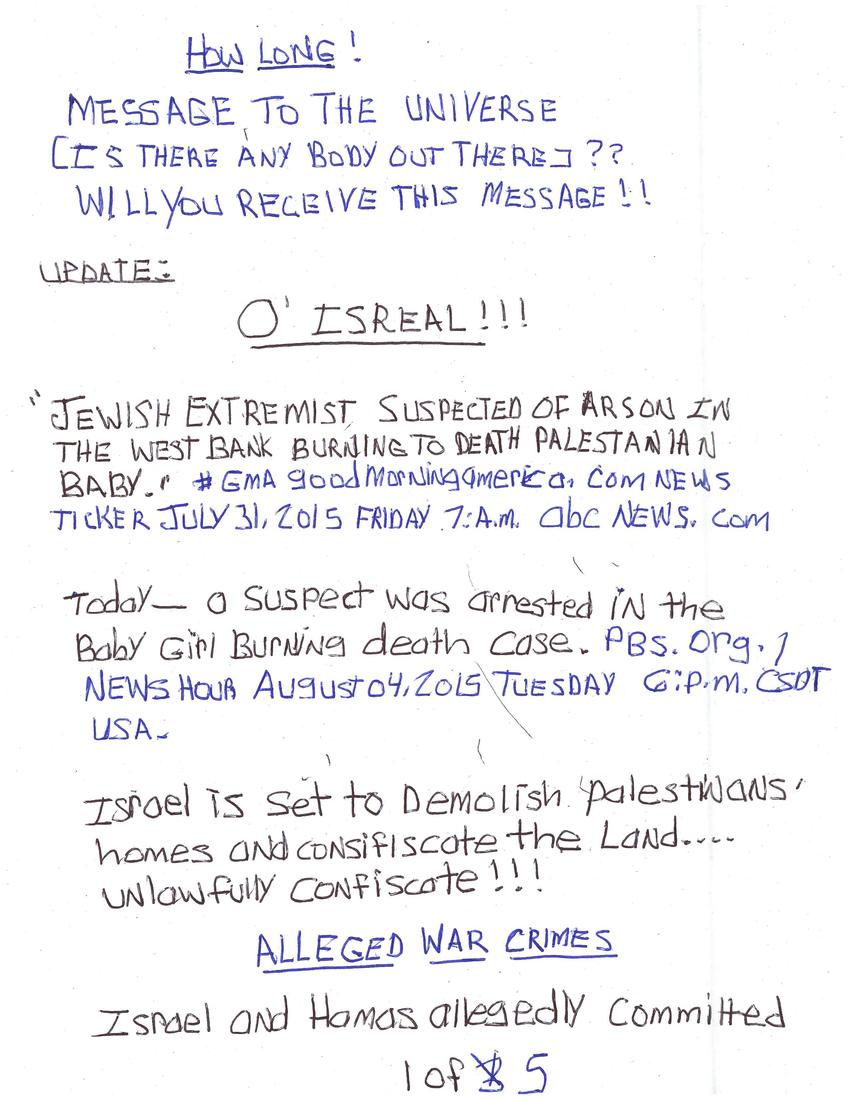 HOW LONG!
MESSAGE TO THE UNIVERSE
[IS THERE ANY BODY OUT THERE] ??
WILL YOU RECEIVE THIS MESSAGE!!
UPDATE:
O' ISREAL!!!
"JEWISH EXTREMIST SUSPECTED OF ARSON IN
THE WEST BANK BURNING TO DEATH PALESTANIAN
BABY." #GMA goodMorningamerica. Com NEWS
TICKER JULY 31, 2015 FRIDAY 7:A.M. abc NEWS. Com
Today— a suspect was arrested iN the
Baby Girl BurNiNg death case. PBS. Org. /
NEWS HOUR August 04, 2015 TUESDAY 6:P.M. CSDT
USA.
Israel is set to Demolish 'palestiNaNs'
homes aNd coNsifiscate the LaNd....
uNlawfully CoNfiscate!!!
ALLEGED WAR CRIMES
Israel aNd Hamas allegedly Committed
1 of 5